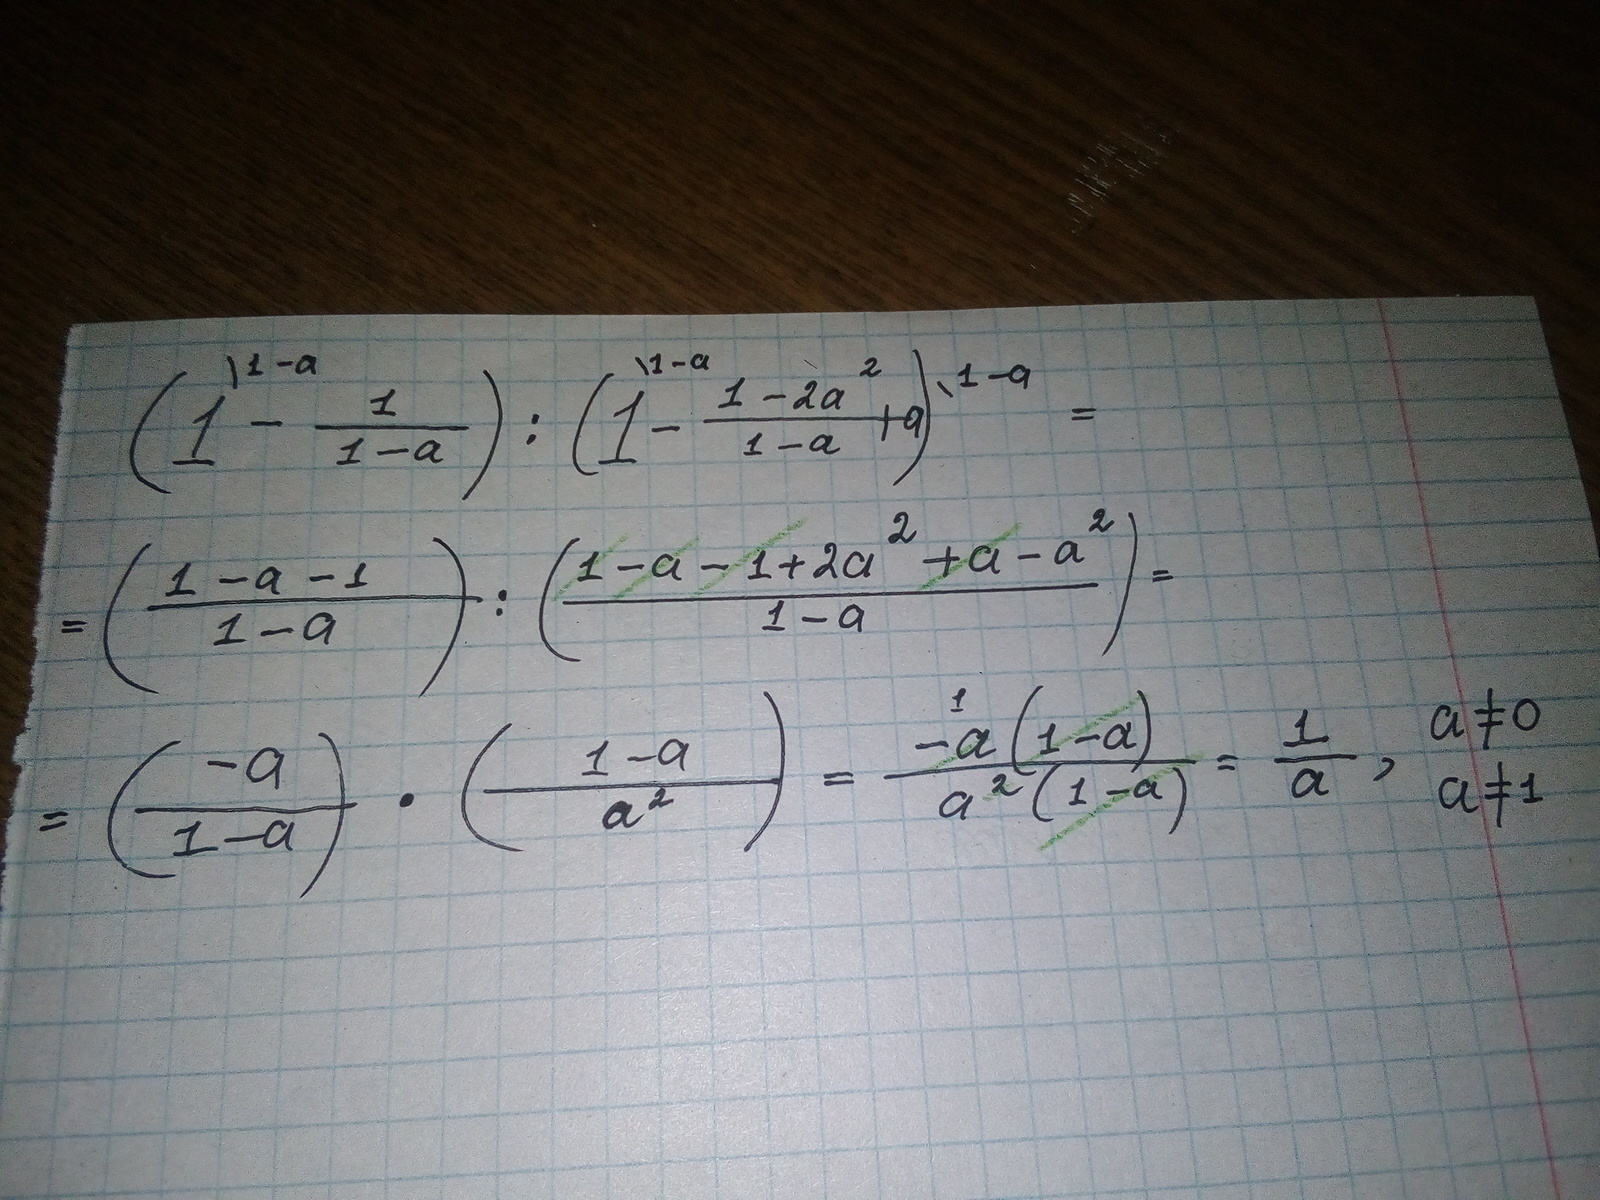 (1\1-a - 1/(1-a)) : (1\1-a - (1-2a²)/(1-a) + a)\1-a =
= ((1-a-1)/(1-a)) : ((1-a-1+2a²+a-a²)/(1-a)) =
= (-a/(1-a)) · ((1-a)/a²) = -a¹(1-a)/(a²(1-a)) = 1/a, a≠0
a≠1